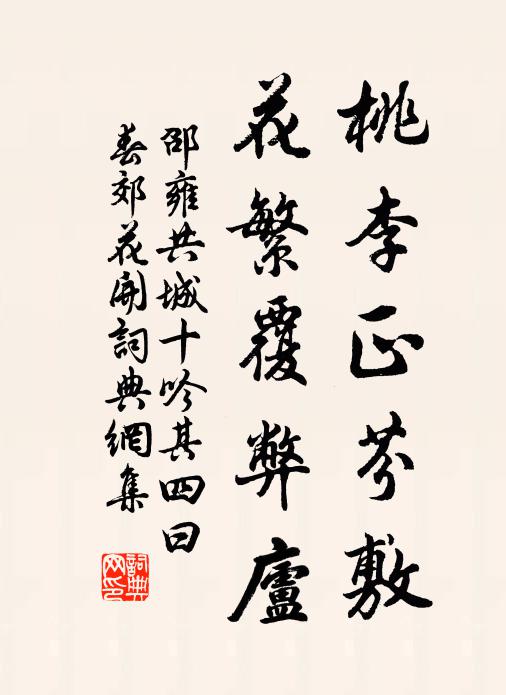 桃李正芬敷
花繁覆弊廬
邵雍共城十吟其四曰
春郊花開詞典網集
詞典
网印